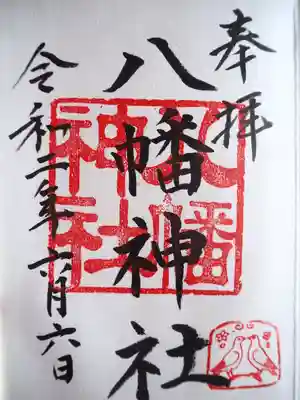 奉拝
八幡神社
八幡
神社
令和二年六月六日